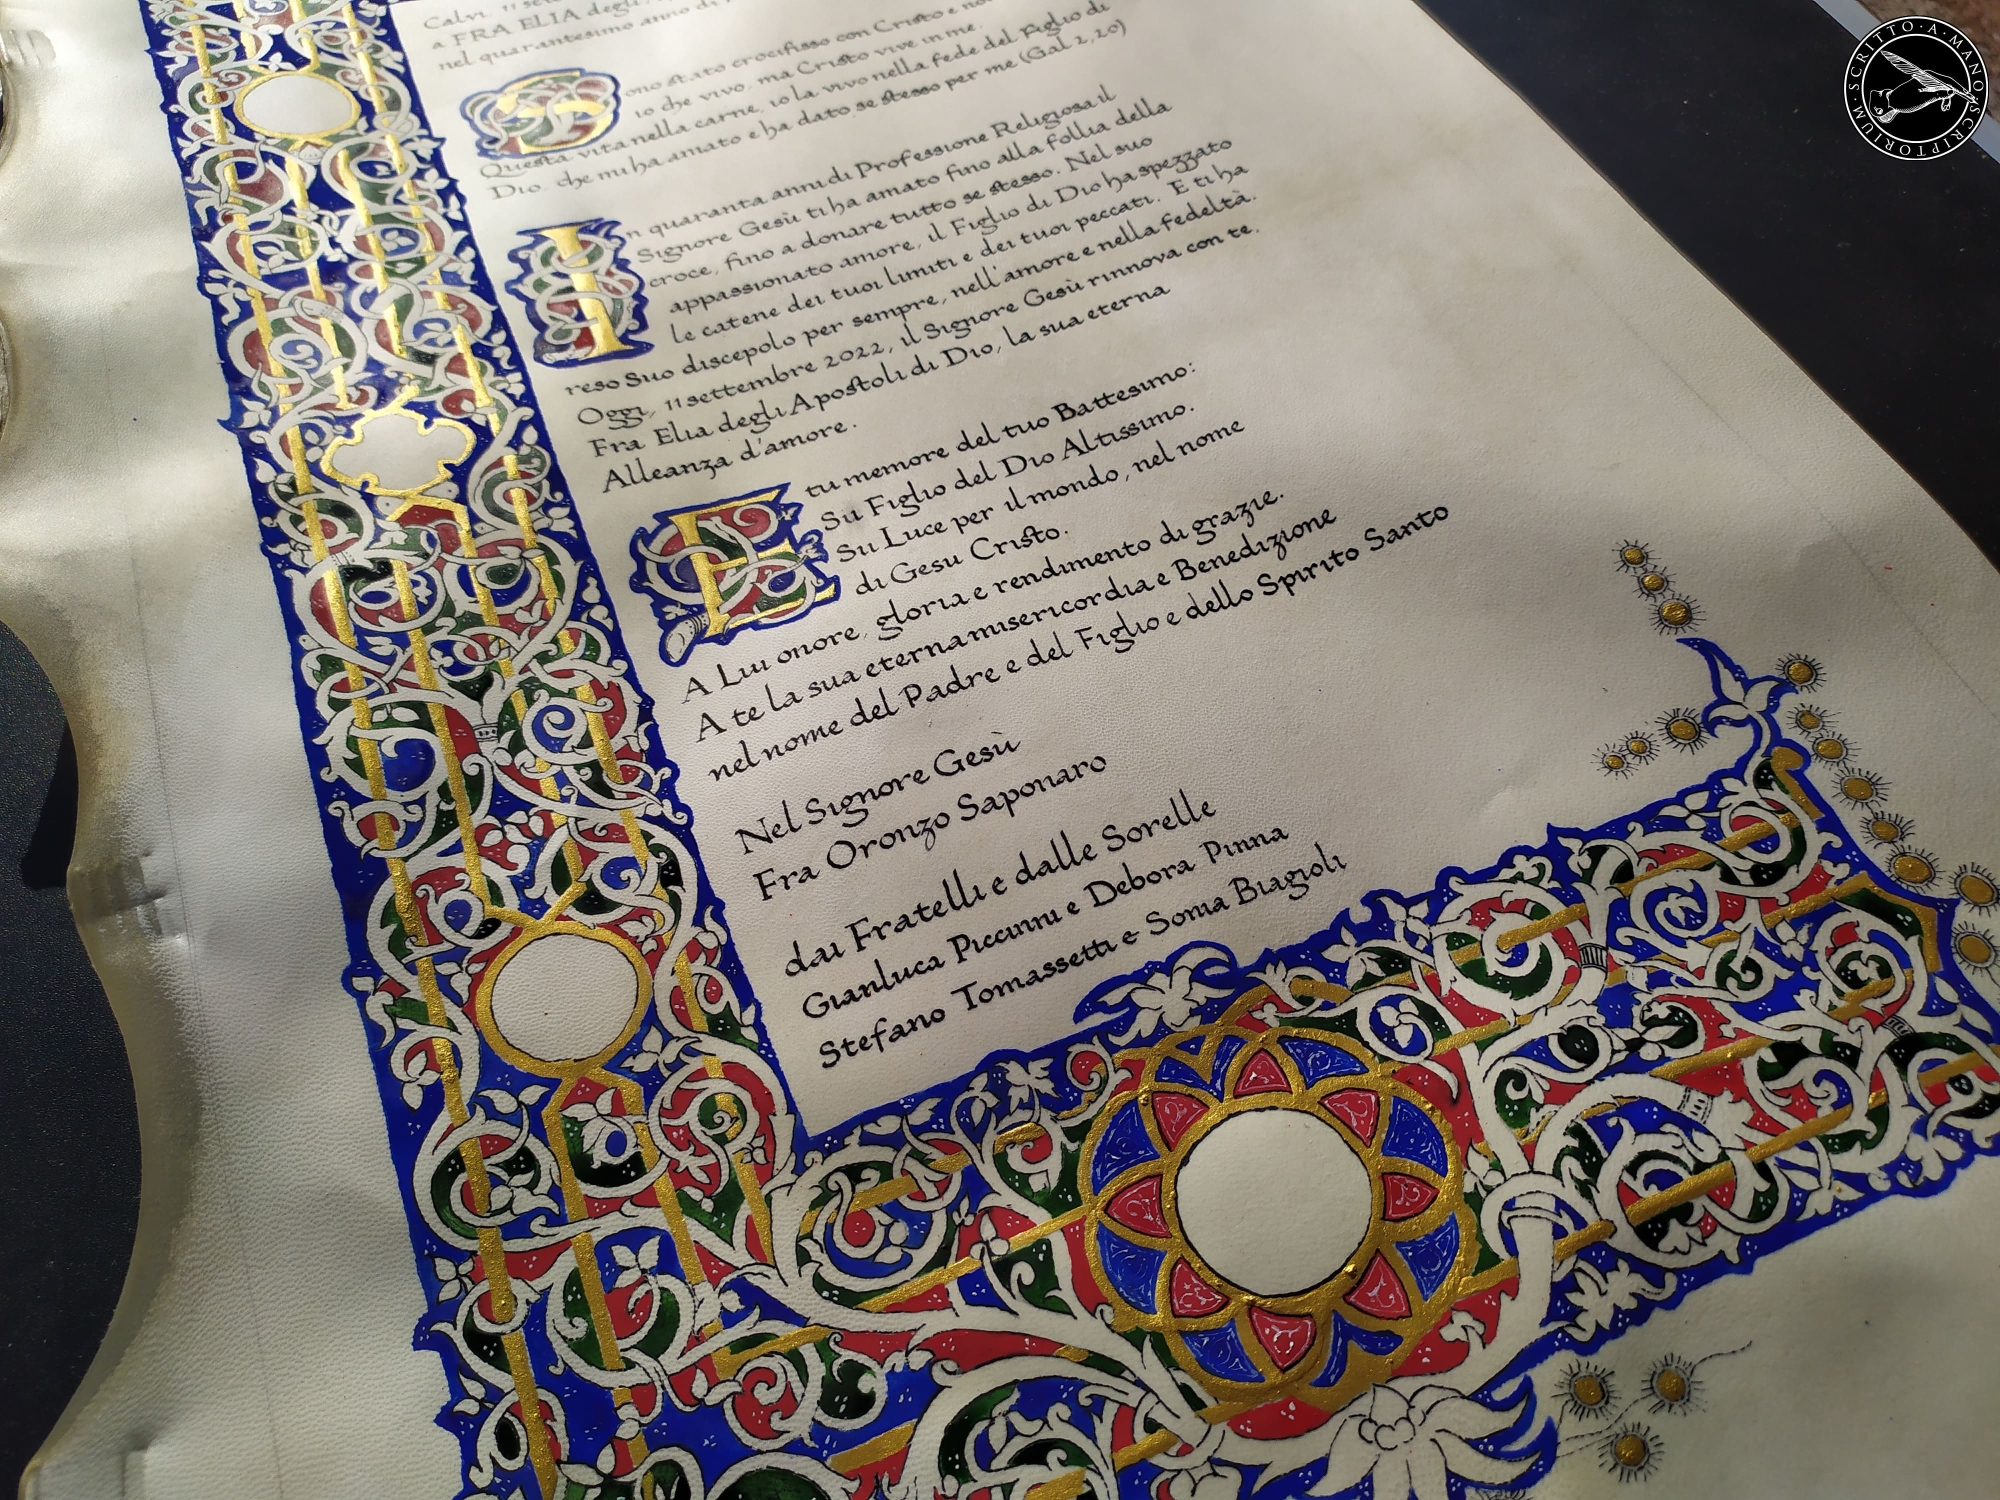 Calvi, 11
a FRA ELIA degli
nel quarantesimo anno di
Sono stato crocifisso con Cristo e
io che vivo, ma Cristo vive in me.
Questa vita nella carne, io la vivo nella fede del Figlio di
Dio, che mi ha amato e ha dato se stesso per me (Gal 2,20)
In quaranta anni di Professione Religiosa il
Signore Gesù ti ha amato fino alla follia della
croce, fino a donare tutto se stesso. Nel suo
appassionato amore, il Figlio di Dio ha spezzato
le catene dei tuoi limiti e dei tuoi peccati. E ti ha
reso Suo discepolo per sempre, nell'amore e nella fedeltà.
Oggi, 11 settembre 2022, il Signore Gesù rinnova con te,
Fra Elia degli Apostoli di Dio, la sua eterna
Alleanza d'amore.
E tu memore del tuo Battesimo:
Su Figlio del Dio Altissimo.
Su Luce per il mondo, nel nome
di Gesu Cristo.
A Lui onore, gloria e rendimento di grazie.
A te la sua eterna misericordia e Benedizione
nel nome del Padre e del Figlio e dello Spirito Santo
Nel Signore Gesù
Fra Oronzo Saponaro
dai Fratelli e dalle Sorelle
Gianluca Piccinni e Debora Pinna
Stefano Tomassetti e Sonia Biagioli
SCRITTO·A·MANO·SCRIPTORIUM